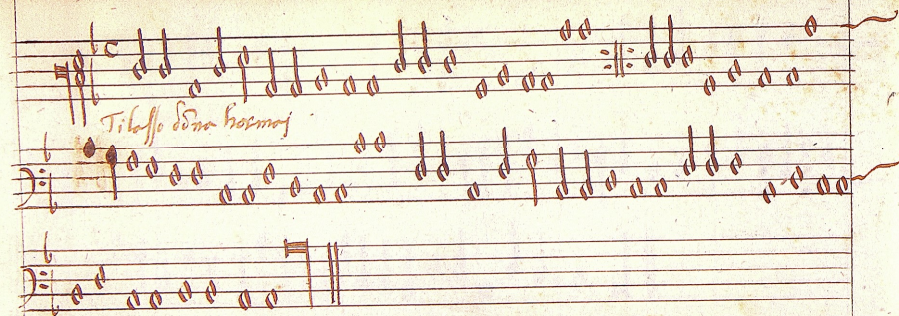 Ti lasso dōna hormaj